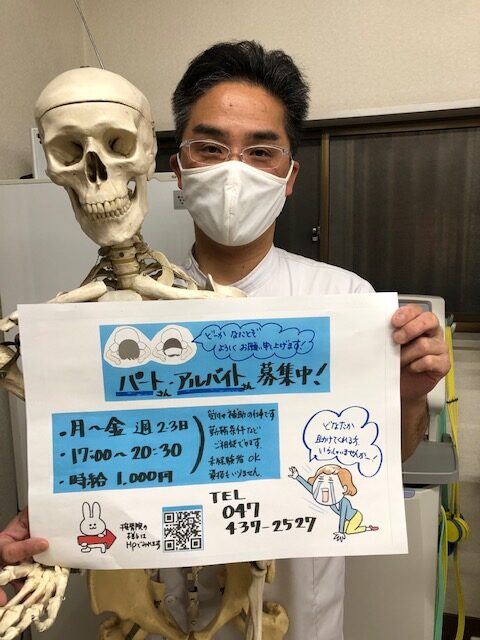 どーか なにとぞ
よろしく お願い申し上げます!
パートさん・アルバイトさん 募集中!
・月～金 週2.3日
・17:00～20:30
・時給 1,000円
受付や補助の仕事です
勤務条件など
ご相談できます。
未経験者 OK
資格もいりません。
どなたか
助けてくれる方
いらっしゃいませんか～!
TEL
047
437-2527
接骨院の
様子は
HPでみれます